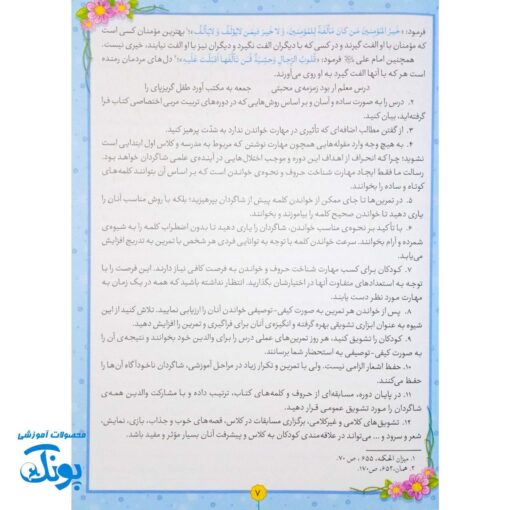 فرمود: «خَیرُ المُؤمِنینَ مَن کانَ مَألَفَةً لِلمُؤمِنینَ، وَ لا خَیرَ فیمَن لایُؤلَفُ وَ لایَألَفُ»؛¹ بهترین مؤمنان کسی است
که مؤمنان با او الفت گیرند و در کسی که با دیگران الفت نگیرد و دیگران نیز با او الفت نیابند، خیری نیست.
همچنین امام علی فرمود: «قُلوبُ الرِّجالِ وَحشِیَّةٌ فَمَن تَألَّفَها أقبَلَت عَلَیهِ»؛² دل‌های مردمان رمنده
است هر که با آنها الفت گیرد به او روی می‌آورند.
درس معلم ار بود زمزمه‌ی محبتی جمعه به مکتب آورد طفل گریزپای را
۲. درس را به صورت ساده و آسان و بر اساس روش‌هایی که در دوره‌های تربیت مربی اختصاصی کتاب فرا
گرفته‌اید، بیان کنید.
۳. از گفتن مطالب اضافه‌ای که تأثیری در مهارت خواندن ندارد به شدّت پرهیز کنید.
۴. به هیچ وجه وارد مقوله‌هایی همچون مهارت نوشتن که مربوط به مدرسه و کلاس اول ابتدایی است
نشوید؛ چرا که انحراف از اهداف این دوره و موجب اختلال‌هایی در آینده‌ی علمی شاگردان خواهد بود.
رسالت ما فقط ایجاد مهارت شناخت حروف و نحوه‌ی خواندن است که بر اساس آن بتوانند کلمه‌های
کوتاه و ساده را بخوانند.
۵. در تمرین‌ها تا جای ممکن از خواندن کلمه پیش از شاگردان بپرهیزید؛ بلکه با روش مناسب آنان را
یاری دهید تا خواندن صحیح کلمه را بیاموزند و بخوانند.
۶. با تأکید بر نحوه‌ی مناسب خواندن، شاگردان را یاری دهید تا بدون اضطراب کلمه را به شیوه‌ی
شمرده و آرام بخوانند. سرعت خواندن کلمه با توجه به توانایی فردی هر شخص با تمرین به تدریج افزایش
می‌یابد.
۷. کودکان برای کسب مهارت شناخت حروف و خواندن به فرصت کافی نیاز دارند. این فرصت را با
توجه به استعدادهای متفاوت آنها در اختیارشان بگذارید. انتظار نداشته باشید که همه در یک زمان به
مهارت مورد نظر دست یابند.
۸. پس از خواندن هر تمرین به صورت کیفی-توصیفی خواندن آنان را ارزیابی نمایید. تلاش کنید از این
شیوه به عنوان ابزاری تشویقی بهره گرفته و انگیزه‌ی آنان برای فراگیری و تمرین را افزایش دهید.
۹. کودکان را تشویق کنید، هر روز تمرین‌های عملی درس را برای والدین خود بخوانند و نتیجه‌ی آن را
به صورت کیفی-توصیفی به استحضار شما برسانند.
۱۰. حفظ اشعار الزامی نیست. ولی با تمرین و تکرار زیاد در مراحل آموزشی، شاگردان ناخودآگاه آن‌ها را
حفظ می‌کنند.
۱۱. در پایان دوره، مسابقه‌ای از حروف و کلمه‌های کتاب، ترتیب داده و با مشارکت والدین همه‌ی
شاگردان را مورد تشویق عمومی قرار دهید.
۱۲. تشویق‌های کلامی و غیرکلامی، برگزاری مسابقات در کلاس، قصه‌های خوب و جذاب، بازی، نمایش،
شعر و سرود و ... می‌تواند در علاقه‌مندی کودکان به کلاس و پیشرفت آنان بسیار مؤثر و مفید باشد.
۱. میزان الحکمه، ۶۵۵ ، ص ۷۰.
۲. همان، ۶۵۲، ص۱۷۰.
۷
محصولات آموزشی
پونک